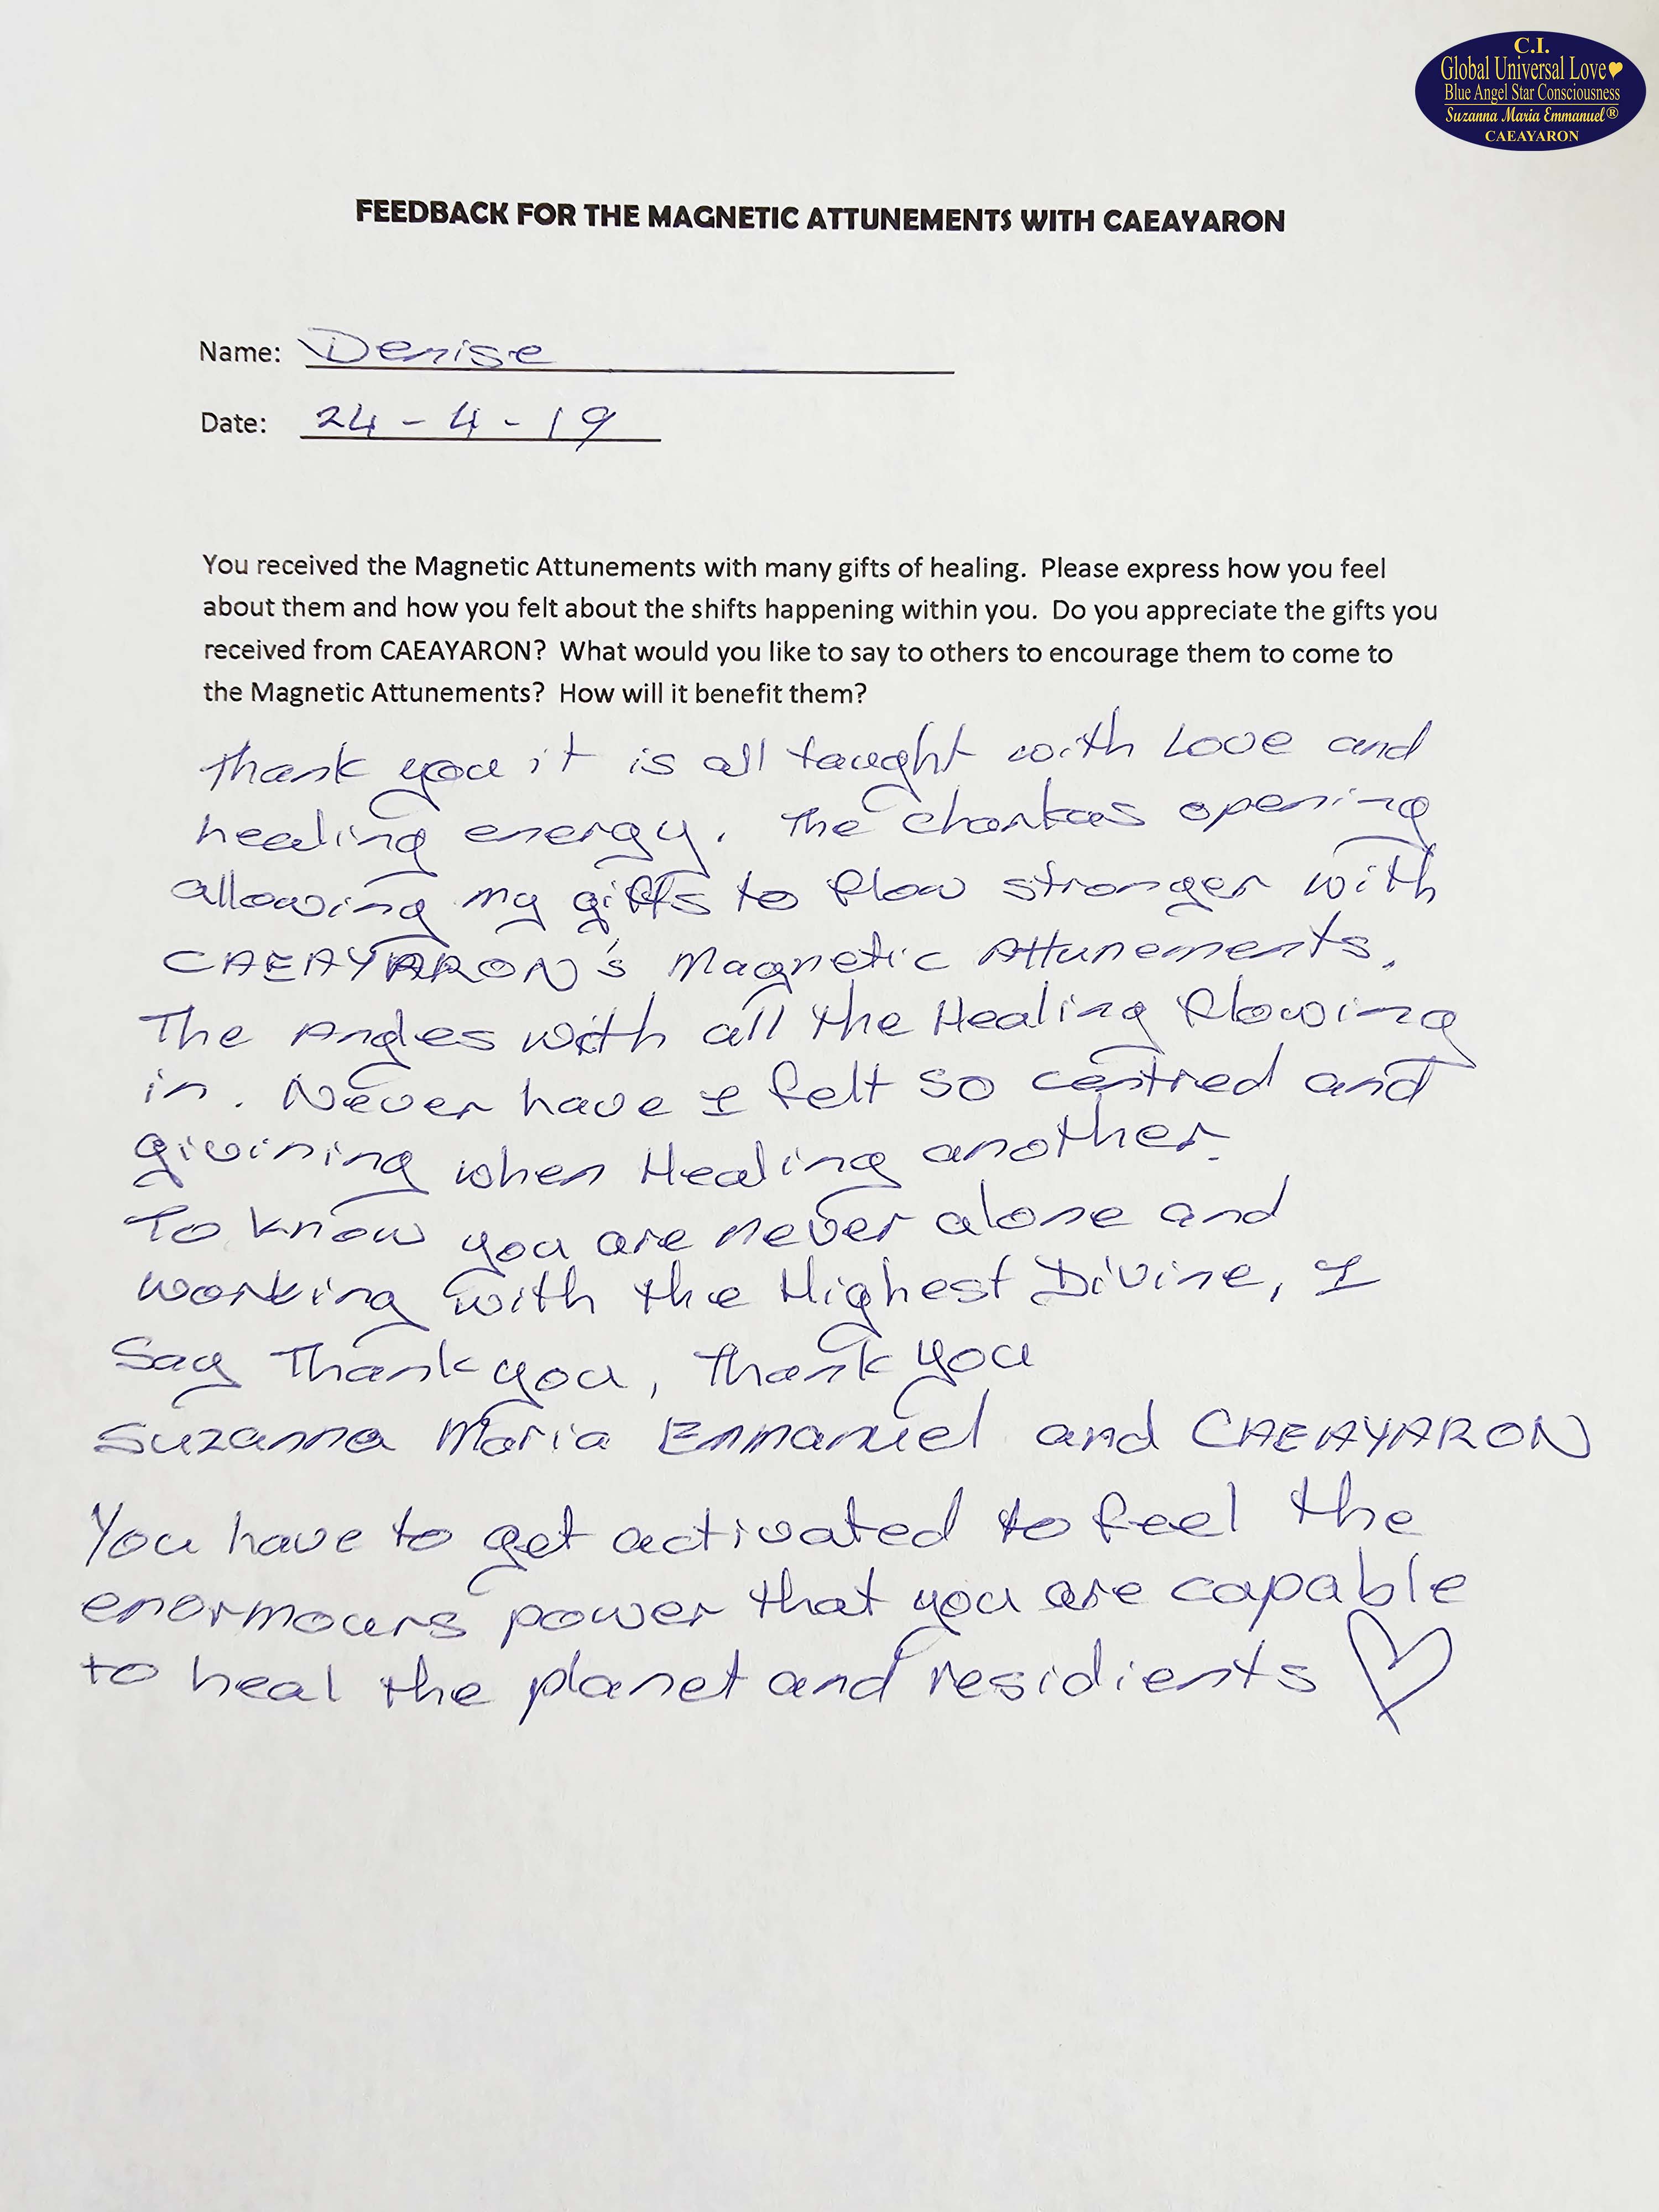 C.I.
Global Universal Love
Blue Angel Star Consciousness
Suzanna Maria Emmanuel®
CAEAYARON
FEEDBACK FOR THE MAGNETIC ATTUNEMENTS WITH CAEAYARON
Name: Denise
Date: 24-4-19
You received the Magnetic Attunements with many gifts of healing. Please express how you feel
about them and how you felt about the shifts happening within you. Do you appreciate the gifts you
received from CAEAYARON? What would you like to say to others to encourage them to come to
the Magnetic Attunements? How will it benefit them?
Thank you it is all taught with Love and
healing energy. The charkas opening
allowing my gifts to flow stronger with
CAEAYARON's Magnetic Attunements.
The Angles with all the Healing flowing
in. Never have I felt so centred and
givining when Healing another.
To know you are never alone and
working with the Highest Divine, I
Say Thank you, Thank you
Suzanna Maria Emmanuel and CAEAYARON
You have to get activated to feel the
enormours power that you are capable
to heal the planet and residients